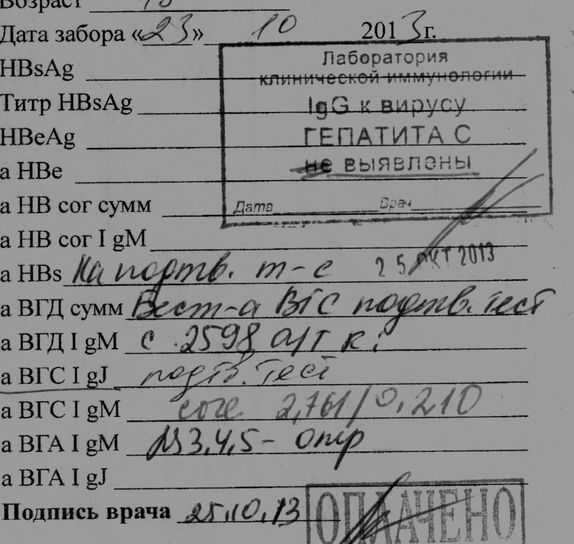 Возраст
Дата забора «23» 10 2013г.
HBsAg
Титр HBsAg
HBeAg
а HBe
а HB cor сумм
а HB cor I gM
а HBs На подтв. т-с
а ВГД сумм Вест-а ВГС подтв. тест
а ВГД I gM с 2598
а ВГС I gJ подтв. тест
а ВГС I gM core 2,761/0,210
а ВГА I gM NS3,4,5 - отр
а ВГА I gJ
Подпись врача 25.10.13
Лаборатория
клинической иммунологии
IgG к вирусу
ГЕПАТИТА С
не выявлены
Дата Врач
25 ОКТ 2013
ОПЛАЧЕНО